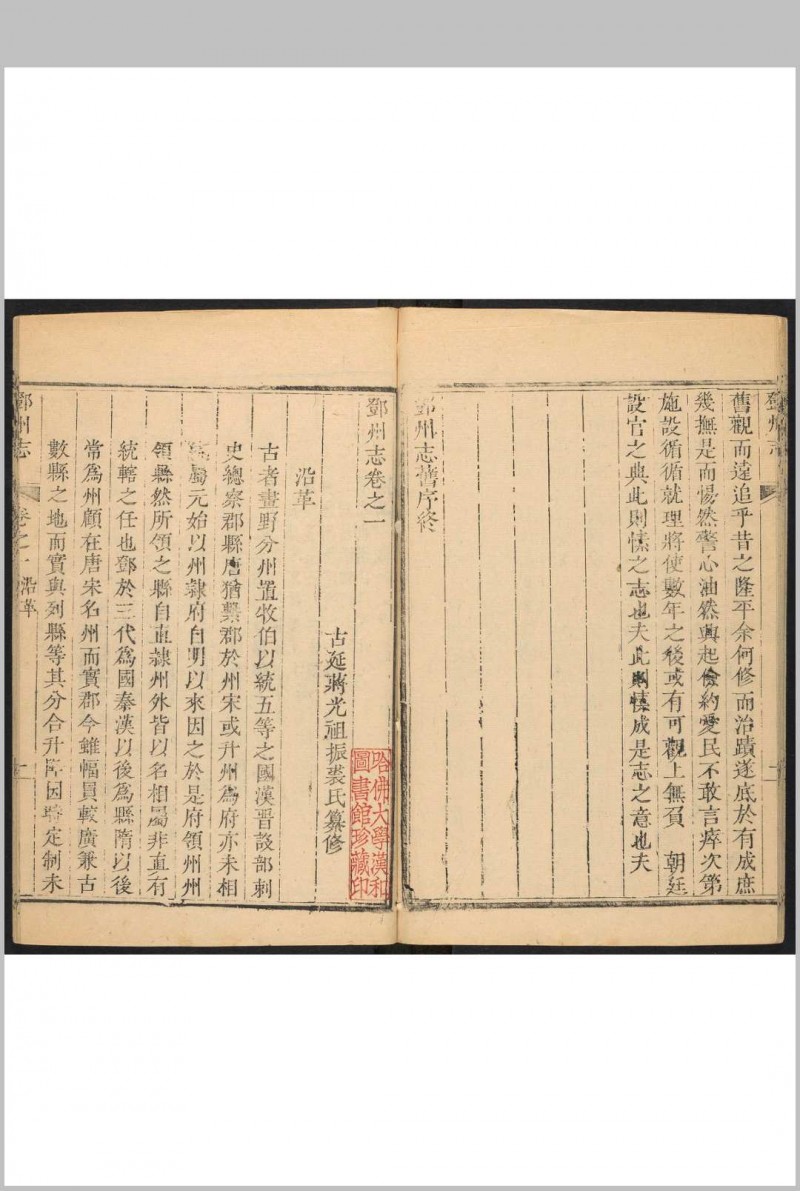 鄧州志
舊觀而遠追乎昔之隆平余何修而治蹟遂底於有成庶
幾撫是而惕然警心油然興起儉約愛民不敢言瘁次第
施設循循就理將使數年之後或有可觀上無負　朝廷
設官之典此則愫之志也夫此則愫成是志之意也夫
鄧州志舊序終
鄧州志卷之一
古延蔣光祖振裘氏纂修
哈佛大學漢和
圖書館珍藏印
沿革
古者畫野分州置牧伯以統五等之國漢晉設部刺
史總察郡縣唐猶繫郡於州宋或升州為府亦未相
統屬元始以州隸府自明以來因之於是府領州州
領縣然所領之縣自直隸州外皆以名相屬非直有
統轄之任也鄧於三代為國秦漢以後為縣隋以後
常為州顧在唐宋名州而實郡今雖幅員較廣兼古
數縣之地而實與列縣等其分合升降因時定制未
鄧州志　卷之一　沿革　一